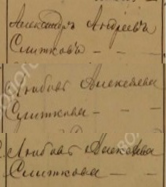 Александръ Андреевъ
Слитковъ - -
Любовь Алексѣева
Слиткова - -
Любовь Алексѣева
Слиткова - -